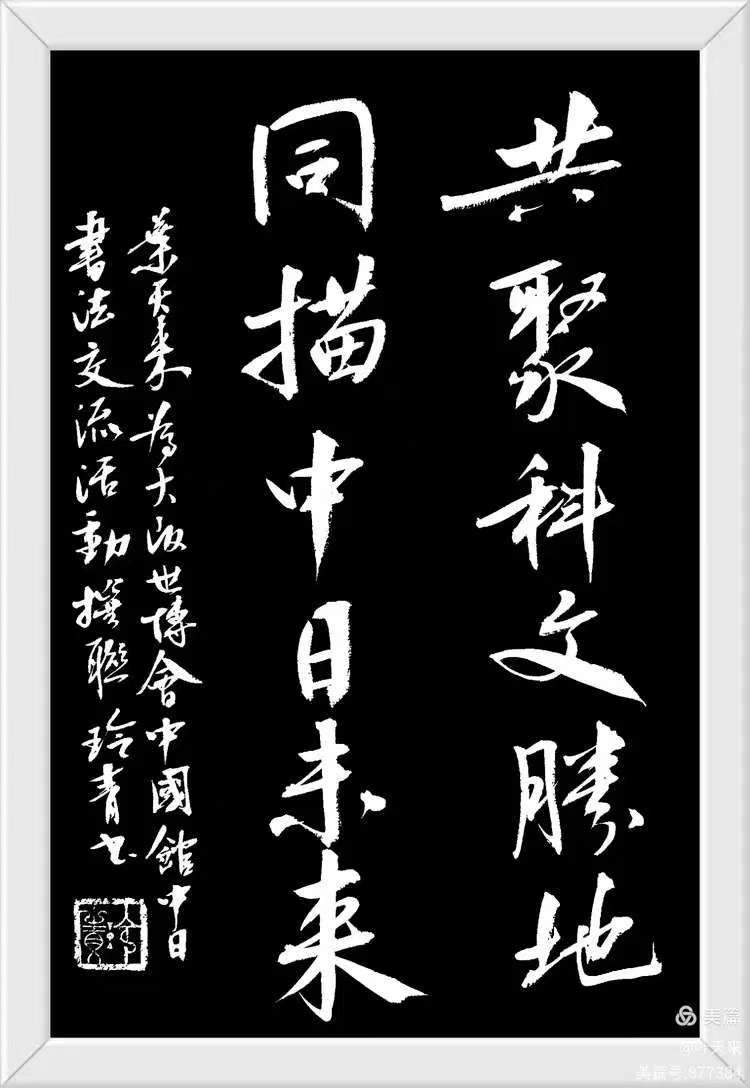 共聚科文勝地
同描中日未来
葉天来為大阪世博會中國館中日
書法交流活動撰聯玲青书
美篇
@叶天来
美篇号:877384